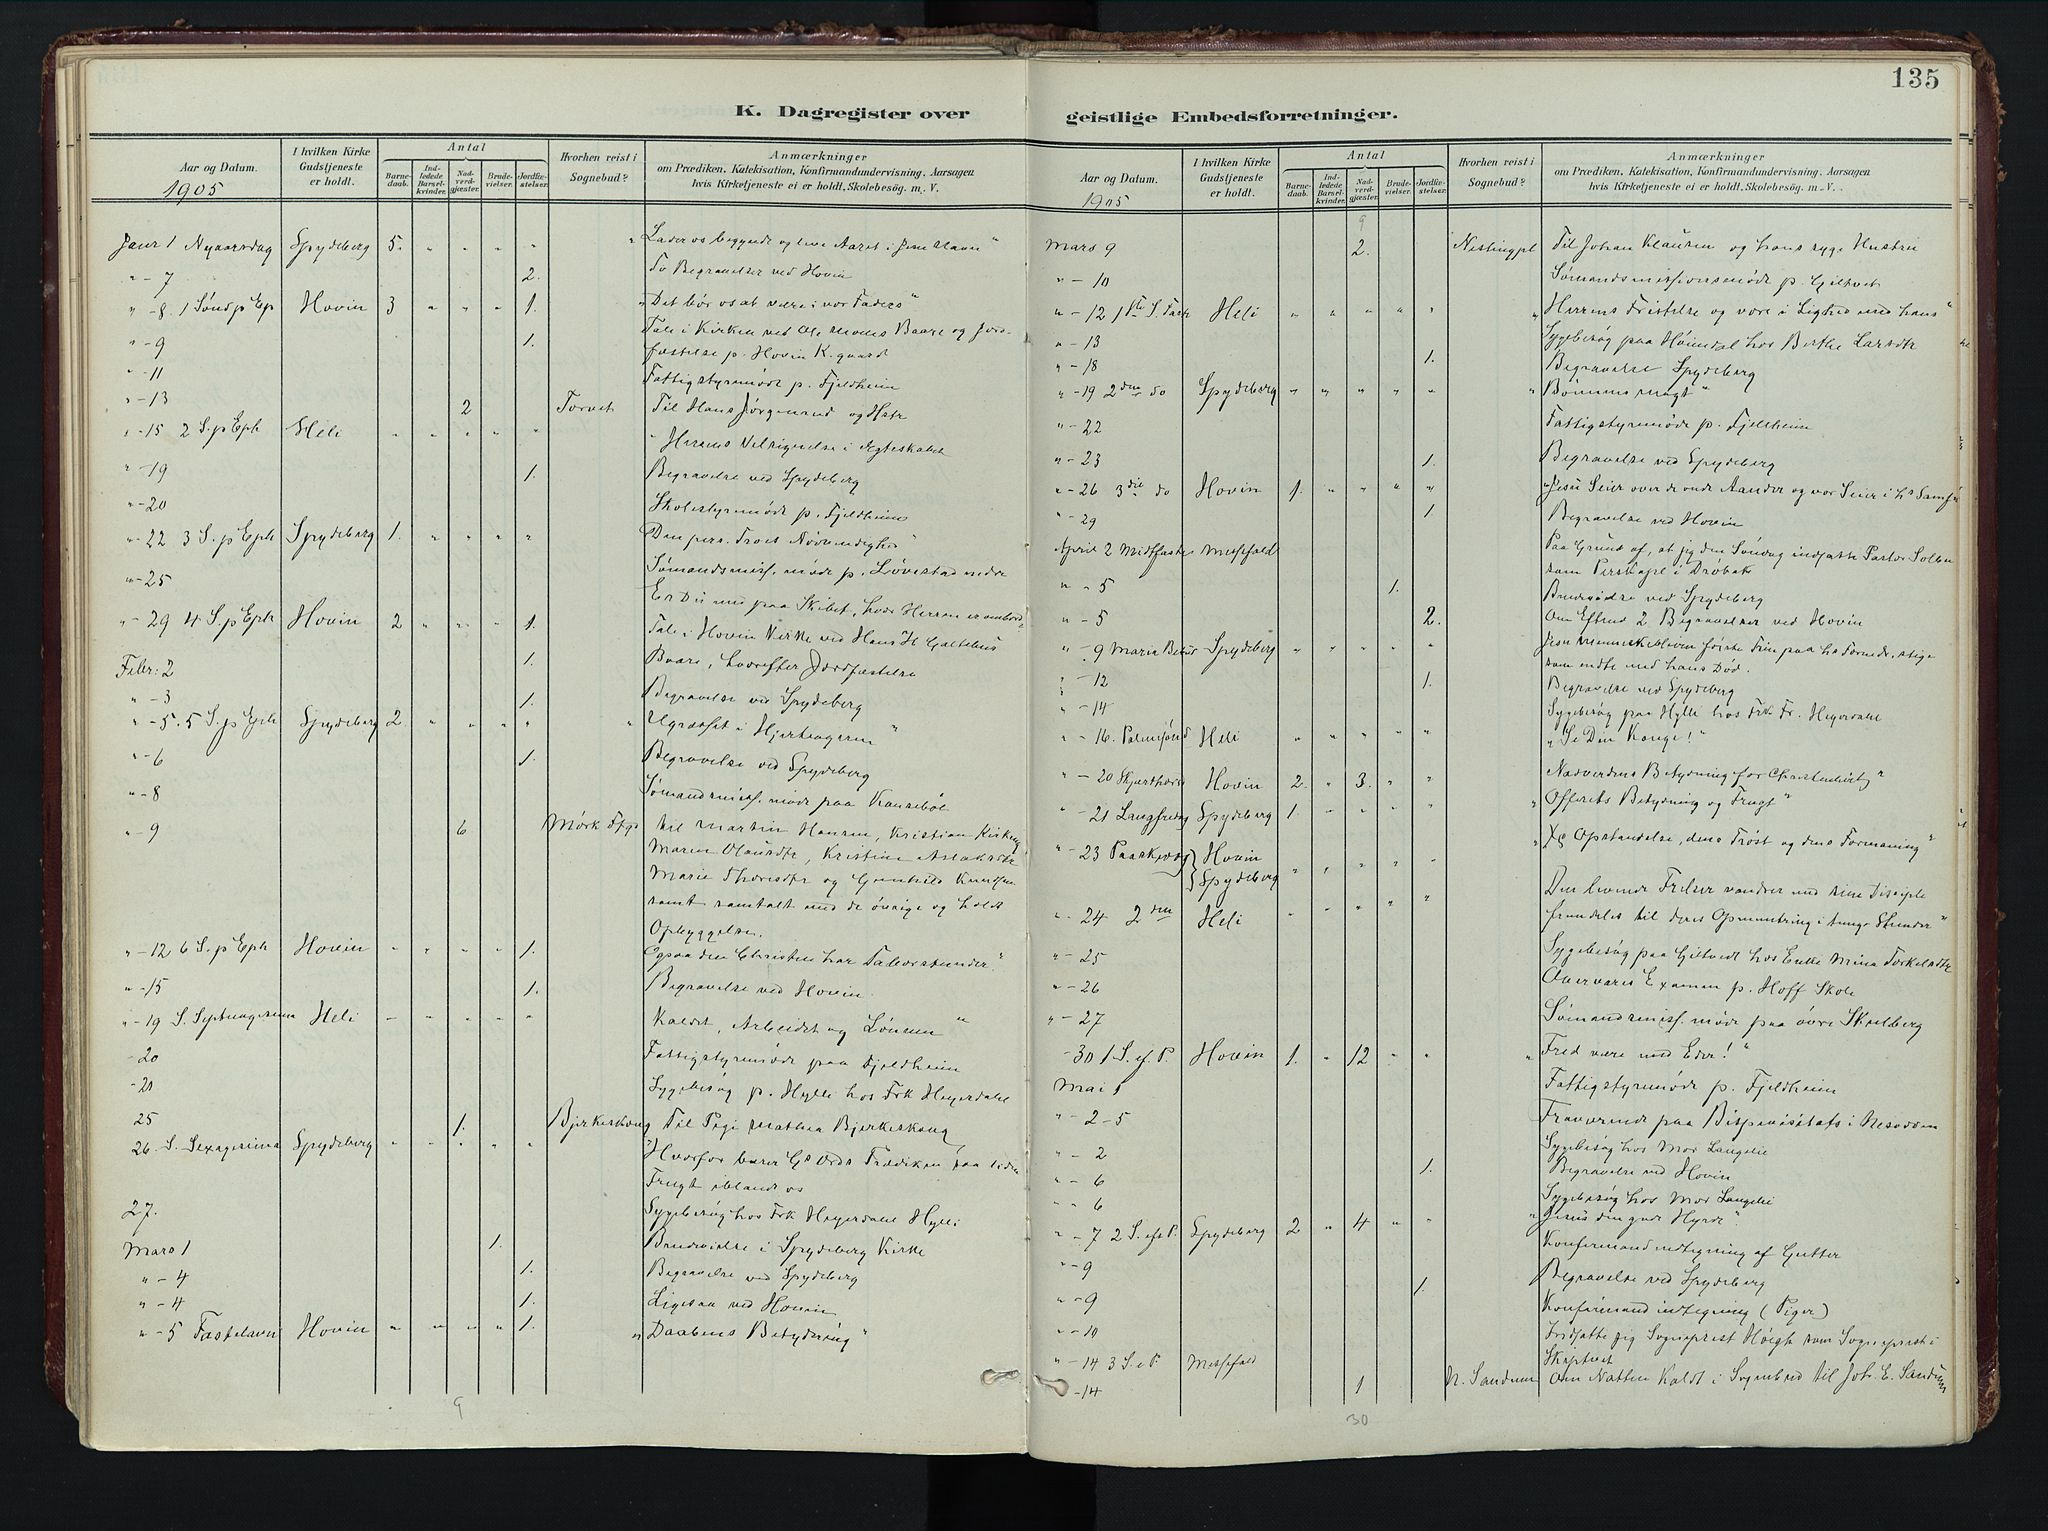 135
K. Dagregister over
Aar og Datum.
1905
I hvilken Kirke Gudstjeneste er holdt.
Antal
Barne-daab.
Ind-ledede Barsel-kvinder.
Nad-verd-gjæster.
Brude-vielser.
Jordfæ-stelser.
Hvorhen reist i Sognebud?
Anmærkninger
om Prædiken. Katekisation, Konfirmandundervisning. Aarsagen
hvis Kirketjeneste ei er holdt. Skolebesøg. m. V.
Janr 1 Nyaarsdag Spydeberg 5. " " " " " Lader os begynde og leve Aaret i Jesu Navn"
" - 7 2. To Begravelser ved Hovin
" - 8. 1 Sönd p Ep Hovin 3 " " " 1. "Det bör os at være i vor Faders"
" - 9 1. Tale i Kirken ved Baare og Jord-
fæstelse p. Hovin K.gaard
" - 11 Fattigstyremöde p. Fjeldheim
" - 13 2 Torvet Til Hans Jörgensrud og Hstr
" - 15 2 S. p Eph Heli " " " " " "Herrens Velsignelse i Ægteskabet
" - 19 1. Begravelse ved Spydeberg
" - 20 Skolestyremöde p. Fjeldheim
" - 22 3 S. p Eph Spydeberg 1. " " " " Den pers. Troes Növendighed"
" - 25 Sömandsmiss. möde p. Lövestad nedre
" - 29 4 S. p Eph Hovin 2 " " " 1. Er Du med paa Skibet, hvor Herren er ombord
Tale i Hovin Kirke ved Hans H Galtehus
Febr: 2 1. Baare, hvorefter Jordfæstelse
" - 3 1. Begravelse ved Spydeberg
" - 5. 5 S. p Eph Spydeberg 2. " " " " " Ugræsset i Hjerteageren "
" - 6 1. Begravelse ved Spydeberg
" - 8 Sömandsmiss. möde paa
" - 9 6 Mörk Ffgd til Martin Hansen, Kristian
Maren Olausdtr, Kristine Aslaksdtr
Marie Thoresdtr og Gunhild Knudsen
samt samtalt med de övrige og holdt
Opbyggelse.
" - 12 6 S. p Eph Hovin " " " " 1. Ogsaa den Christen har Taborstunder."
" - 15 1. Begravelse ved Hovin.
" - 19 S. Septuagesima Heli " " " " " Kaldet, Arbeidet og Lönnen "
- 20 Fattigstyremöde paa Fjeldheim
- 21 Sygebesög p. Hylli hos Frk Heyerdahl
25 1. Bjerkeskoug Til Pige Mathea Bjerkeskoug
26. S. Sexagesima Spydeberg " " " " " "Hvorfor bærer Gs Ords Prædiken saa liden
Frugt iblandt os
27. Sygebesög hos Frk Heyerdahl Hylli
Mars 1 1. Brudevielse i Spydeberg Kirke
" - 4 1. Begravelse ved Spydeberg
" - 4 1. Ligesaa ved Hovin
" - 5 Fastelavn Hovin " " " " 1. " Daabens Betydning"
9
geistlige Embedsforretninger.
Aar og Datum.
1905
I hvilken Kirke Gudstjeneste er holdt.
Antal
Barne-daab.
Ind-ledede Barsel-kvinder.
Nad-verd-gjæster.
Brude-vielser.
Jordfæ-stelser.
Hvorhen reist i Sognebud?
Anmærkninger
om Prædiken. Katekisation, Konfirmandundervisning. Aarsagen
hvis Kirketjeneste ei er holdt. Skolebesøg. m. V.
9
Mars 9 2. Til Johan Klausen og hans syge Hustru
" - 10 Sömandsmissionsmöde p. Giltvet
" - 12 1ste S. Fast Heli " " " " " "Herrens Fristelse og vore i Lighed med hans"
" - 13 Sygebesög paa Höiendal hos Berthe Larsdtr
" - 18 1. Begravelse Spydeberg
" - 19 2den do Spydeberg " " " " " "Bönnens magt"
" - 22 Fattigstyremöde p. Fjeldheim
" - 23 1. Begravelse ved Spydeberg
" - 26 3die do Hovin 1. " " " " "Jesu Seier over de onde Aander og vor Seier i hs Samf
" - 29 1. Begravelse ved Hovin
April 2 Midtfaste Messefald Paa Grund af, at jeg den Söndag indsatte Pastor
som Perskapl i Dröbak
" - 5 1. Brudevielse ved Spydeberg
" - 5 2. Om Eftmd 2 Begravelser ved Hovin
" - 9 Mariæ Bebud Spydeberg " " " " " Jesu menneskebliven förste Trin paa hs Fornedr. stige
som endte med hans Död.
" - 12 1. Begravelse ved Spydeberg
" - 14 Sygebesög paa Hylli hos Frk Fr. Heyerdahl
" - 16. Palmesönd Heli " " " " " "Se Din Konge!"
" - 20 Skjærthorsd Hovin 2. " 3. " " Nadverdens Betydning for Christenlivet "
" - 21 Langfredag Spydeberg 1. " " " " "Offerets Betydning og Frugt"
" - 23 Paaskedag Hovin Spydeberg " " " " " "Xs Opstandelse, dens Tröst og dens Formaning"
" - 24 2den Heli " " " " " Den levende Frelser vandrer med sine Disciple
fremdeles til deres Opmuntring i tunge Stunder "
" - 25 Sygebesög paa Giltvedt hos Enke Mina Torkelsdtr
" - 26 Overværet Examen p. Hoff Skole
" - 27 Sömandsmiss. möde paa övre Skulberg
- 30 1 S. ef. P. Hovin 1. " 12 " " "Fred være med Eder!"
Mai 1 Fattigstyremöde p. Fjeldheim
" - 2-5 Fraværende paa Bispevisitats i Nesodden
" - 2 Sygebesög hos Mor Langelie
" - 6 1. Begravelse ved Hovin
" - 6 Sygebesög hos Mor Langeli
" - 7 2 S. eft. P. Spydeberg 2 " 4 " " "Jesus den gode Hyrde".
" - 9 Konfirmand indtegning af Gutter
" - 9 1. Begravelse ved Spydeberg
" - 10 Konfirmand indtegning (Piger)
" - 14 3 S. e P. Messefald Indsatte jeg Sogneprest Höigh som Sogneprest i
Skiptvet
- 14 1 N. Sandum Om Natten Kaldt i Sognebud til Joh. E. Sandum
30